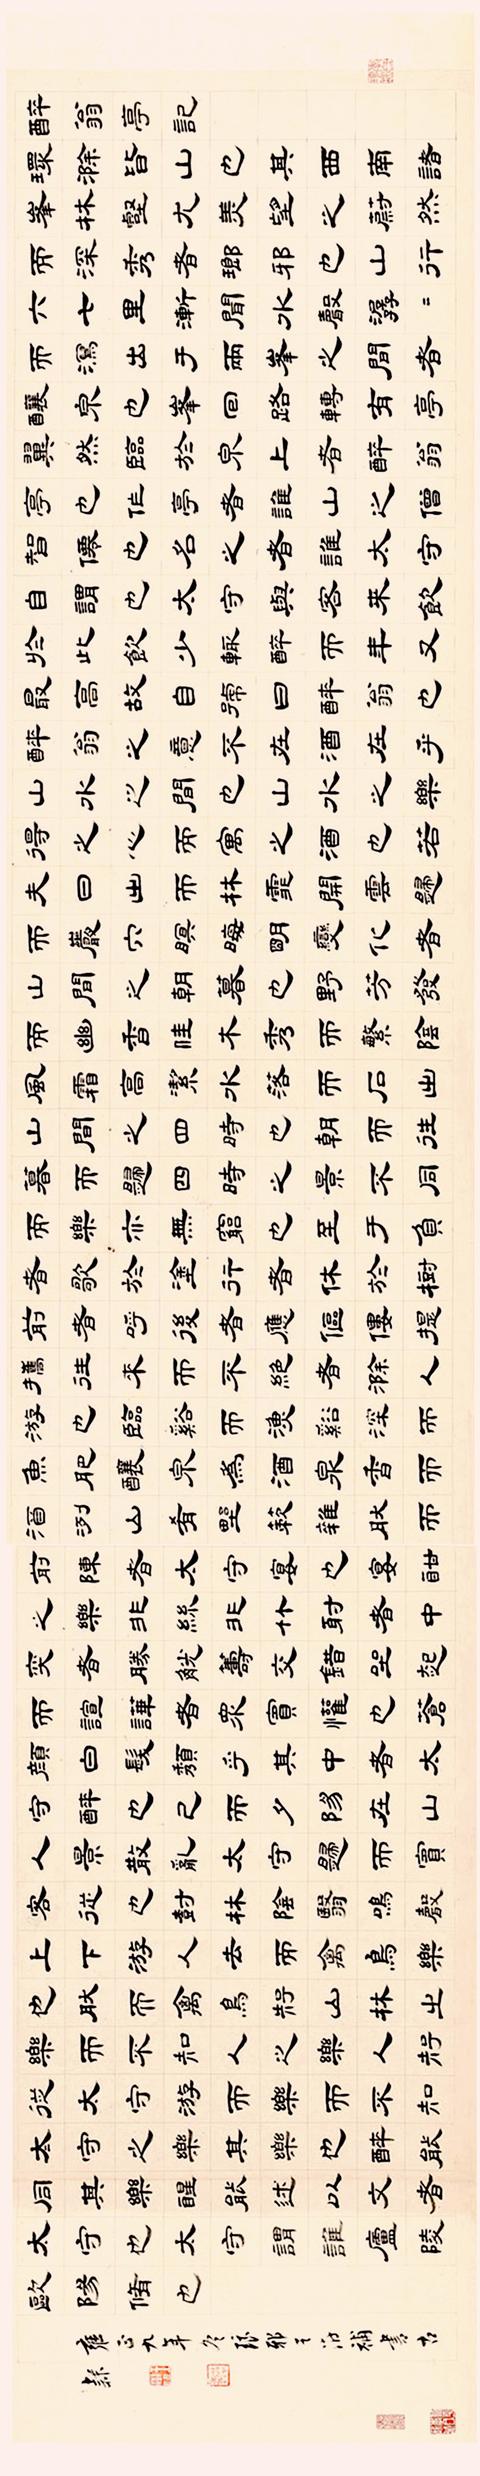 醉翁亭記
環滁皆山也其西南諸
峯林壑尤美望之蔚然
而深秀者瑯邪也山行
六七里漸聞水聲潺=
而瀉出于兩峯之間者
釀泉也峯回路轉有亭
翼然臨於泉上者醉翁
亭也作亭者誰山之僧
智僊也名之者誰太守
自謂也太守與客來飲
於此飲少輒醉而年又
最高故自號曰醉翁也
醉翁之意不在酒在乎
山水之間也山水之樂
得之心而寓之酒也若
夫日出而林霏開雲歸
而巖穴暝晦明變化者
山間之朝暮也野芳發
而幽香佳木秀而繁陰
風霜高潔水落而石出
山間之四時也朝而往
暮而歸四時之景不同
而樂亦無窮也至于負
者歌於塗行者休於樹
前者呼後者應傴僂提
攜往來而不絕者滁人
游也臨谿而漁谿深而
魚肥釀泉為酒泉香而
酒洌山肴野蔌雜肰而
前陳者太守宴也宴酣
之樂非絲非竹射者中
弈者勝觥籌交錯坐起
而諠譁者眾賓懽也蒼
顏白髮頹乎其中者太
守醉也已而夕陽在山
人景散亂太守歸而賓
客從也林陰翳鳴聲
上下游人去而禽鳥樂
也肰而禽鳥知山林之
樂而不知人之樂人知
從太守游而樂而不知
太守之樂其樂也醉能
同其樂醒能述以文者
太守也太守謂誰廬陵
歐陽脩也
雍正九年冬琅邪王補書